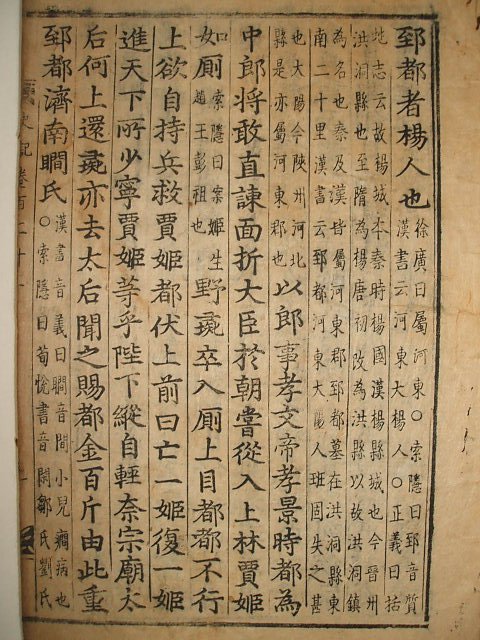 郅都者楊人也徐廣曰屬河東○索隱曰郅音質
漢書云河東大楊人○正義曰括
地志云故楊城本秦時楊國漢楊縣城也今晉州
洪洞縣也至隋為楊唐初改為洪洞縣以故洪洞鎮
為名也秦及漢皆屬河東郡郅都墓在洪洞縣東
南二十里漢書云郅都河東大陽人班固失之甚
也大陽今陜州河北
縣是亦屬河東郡也以郎事孝文帝孝景時都為
中郎将敢直諫面折大臣於朝嘗從入上林賈姬
如廁索隱曰案姬生
趙王彭祖也野彘卒入廁上目都都不行
上欲自持兵救賈姬都伏上前曰亡一姬復一姬
進天下所少寧賈姬等乎陛下縱自輕奈宗廟太
后何上還彘亦去太后聞之賜都金百斤由此重
郅都濟南瞯氏○漢書音義曰瞯音間小兒癇病也
○索隱曰荀悅書音閑鄒氏劉氏
史記卷百二十